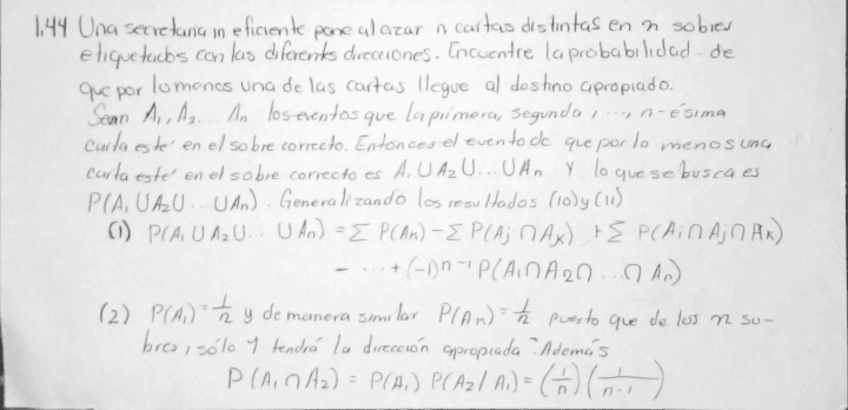 1.44 Una secretaria in eficiente pone al azar n cartas distintas en n sobres
etiquetados con las diferents direcciones. Encuentre la probabilidad de
que por lo menos una de las cartas llegue al destino apropiado.
Sean A₁, A₂... An los eventos que la primera, segunda, ..., n-ésima
carta esté en el sobre correcto. Entonces el evento de que por lo menos una
carta esté en el sobre correcto es A₁ ∪ A₂ ∪ ... ∪ An y lo que se busca es
P(A₁ ∪ A₂ ∪ ... ∪ An). Generalizando los resultados (10) y (11)
(1) P(A₁ ∪ A₂ ∪ ... ∪ An) = Σ P(Ak) - Σ P(Aj ∩ Ak) + Σ P(Ai ∩ Aj ∩ Ak)
- ... + (-1)n⁻¹ P(A₁ ∩ A₂ ∩ ... ∩ An)
(2) P(A₁) = 1/n y de manera similar P(An) = 1/n puesto que de los n so-
bres, sólo 1 tendrá la dirección apropiada. Además
P(A₁ ∩ A₂) = P(A₁) P(A₂/A₁) = (1/n)(1/n-1)